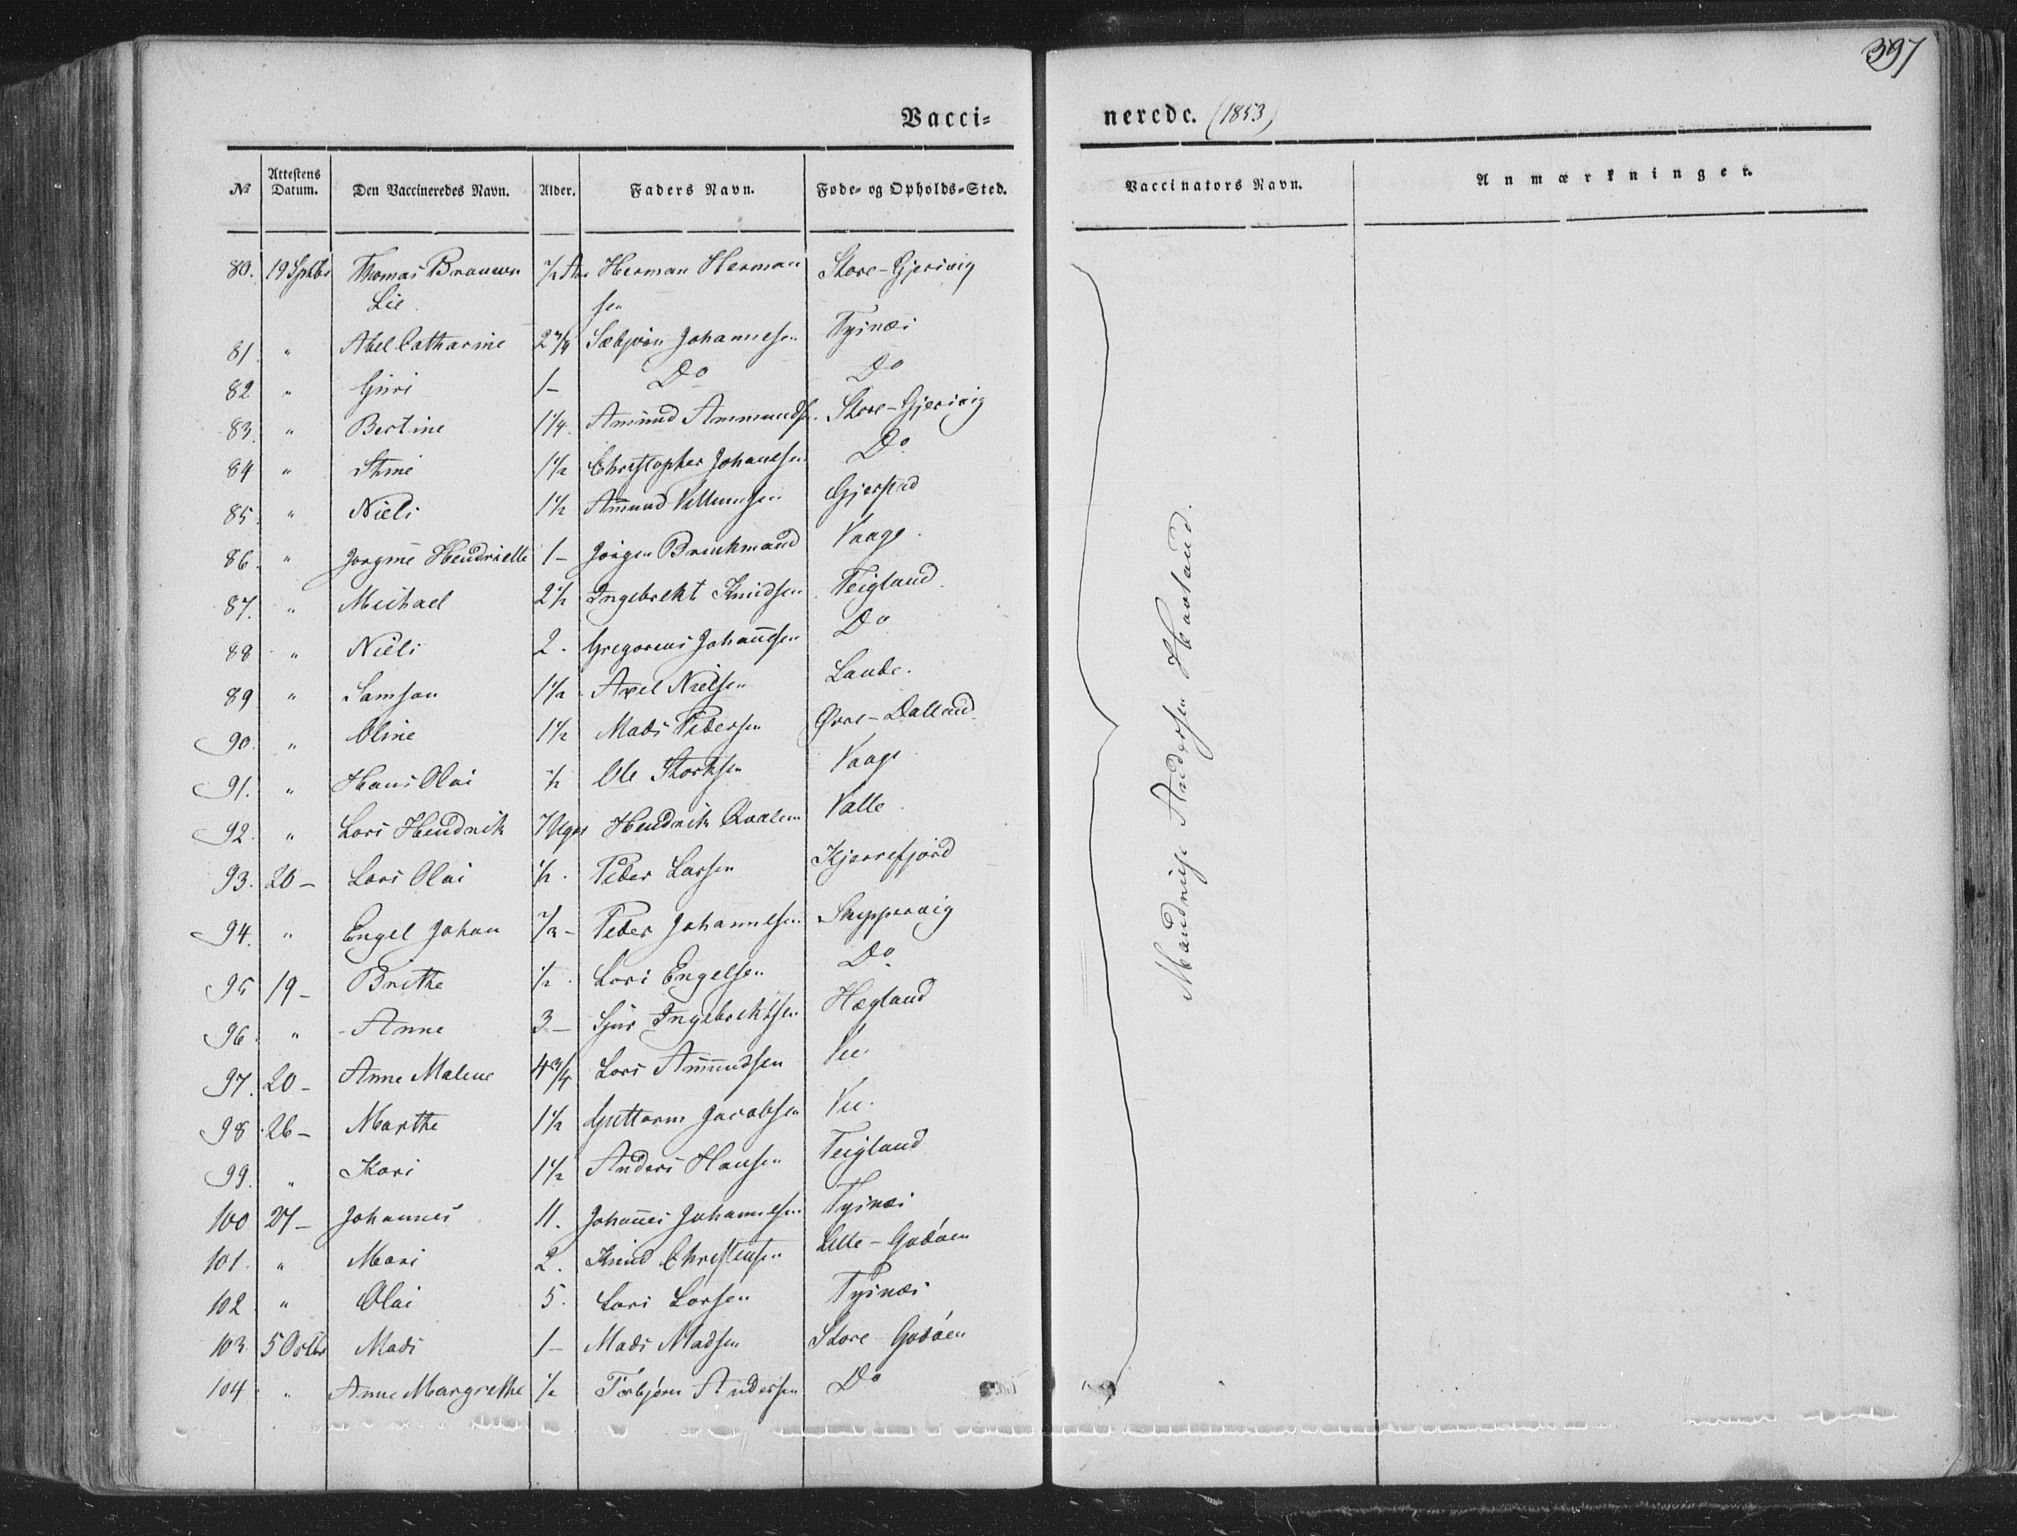 397
Vacci= nerede. (1853)
No Attestens Datum. Den Vaccineredes Navn. Alder. Faders Navn. Føde- og Opholds-Sted. Vaccinators Navn. Anmærkninger.
80. 19 Sptbr Thomas Brauwn ½ Aar Herman Herman Store-Gjerivig
Lie sen
81. " Abel Catharine 2¾ Sæbjørn Johannesen Tysnæs
82 " Guri 1- Do Do
83. " Bertine 1¼. Amund Ammundsn. Store-Gjerivig
84 " Stine 1½ Christopher Johannesen Do
85. " Niels 1½ Amund Villumsen Gjerstad
86. " Jørgine Hendriette 1- Jørgen Brinkmand Vaage.
87. " Michael 2½ Ingebrekt Knudsen Teigland.
88 " Niels 2. Gregorius Johannsen Do
89 " Samson 1½ Axel Nielsen Lande.
90. " Oline 1½ Mads Pedersen Øvre-Dalland.
91. " Hans Olai ½ Ole Storksen Vaage
92. " Lars Hendrik 7 Uger Hendrik Qvalem Valle.
93. 20- Lars Olai ½. Peder Larsen Kjerrefjord
94. " Engel Johan ½- Peder Johannesen Skippervig
95 19- Brithe ½ Lars Engelsen Do
96. " Anne 3- Sjur Ingebrektsen Hægland
97. 20- Anne Malene 4¾ Lars Amundsen Vee
98. 26- Marthe 1½ Guttorm Jacobsen Vee.
99. " Kari 1½ Anders Hansen Teigland
100 27- Johannes 11. Johanes Johannesen Tysnæs
101. " Mari 2. Knud Christensen Lille-Godøen
102. " Olai 5. Lars Larsen Tysnæs
103. 5 Octbr Mads 1- Mads Madsen Store-Godøen
104. " Anne Margrethe ½ Torbjørn Andersen Do
Andersen Havland.